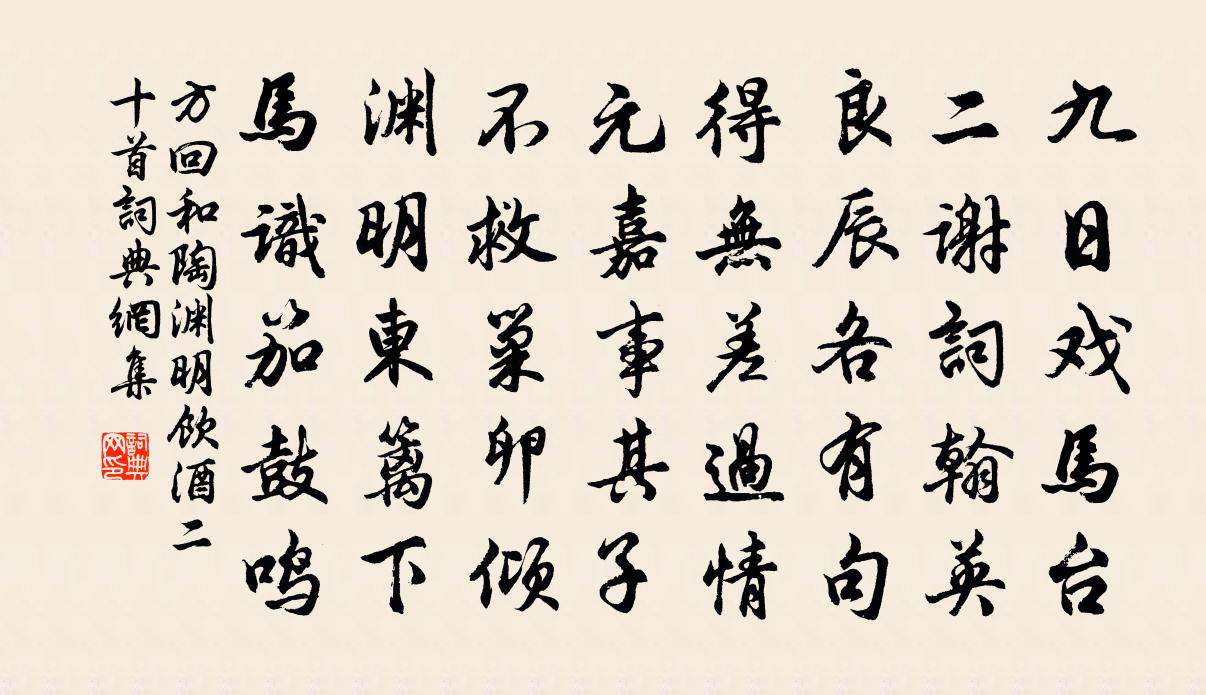 九日戏馬台
二谢詞翰英
良辰各有句
得無差過情
元嘉事其子
不救巢卵倾
渊明東篱下
馬識笳鼓鸣
方回和陶渊明飲酒二
十首詞典網集
詞典
网印